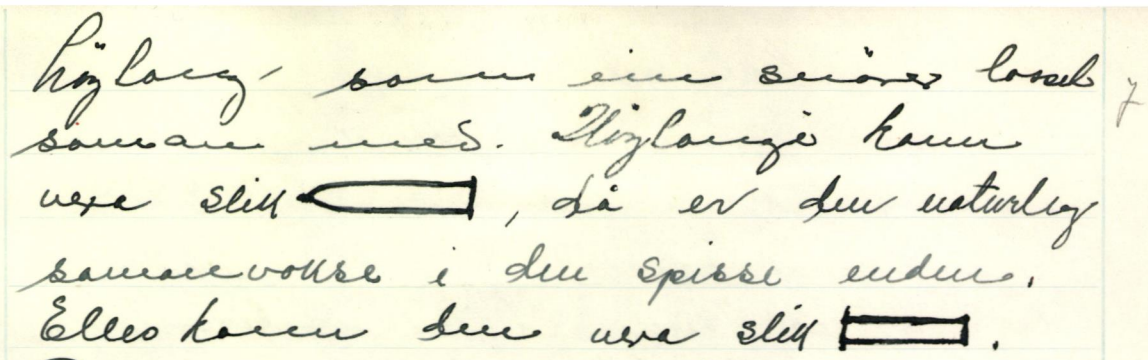 höglong, som ein snörer lasset
saman med. Höglongi kann
vera slik , då er den naturleg
samanvokse i den spisse enden.
Elles kann den vera slik .